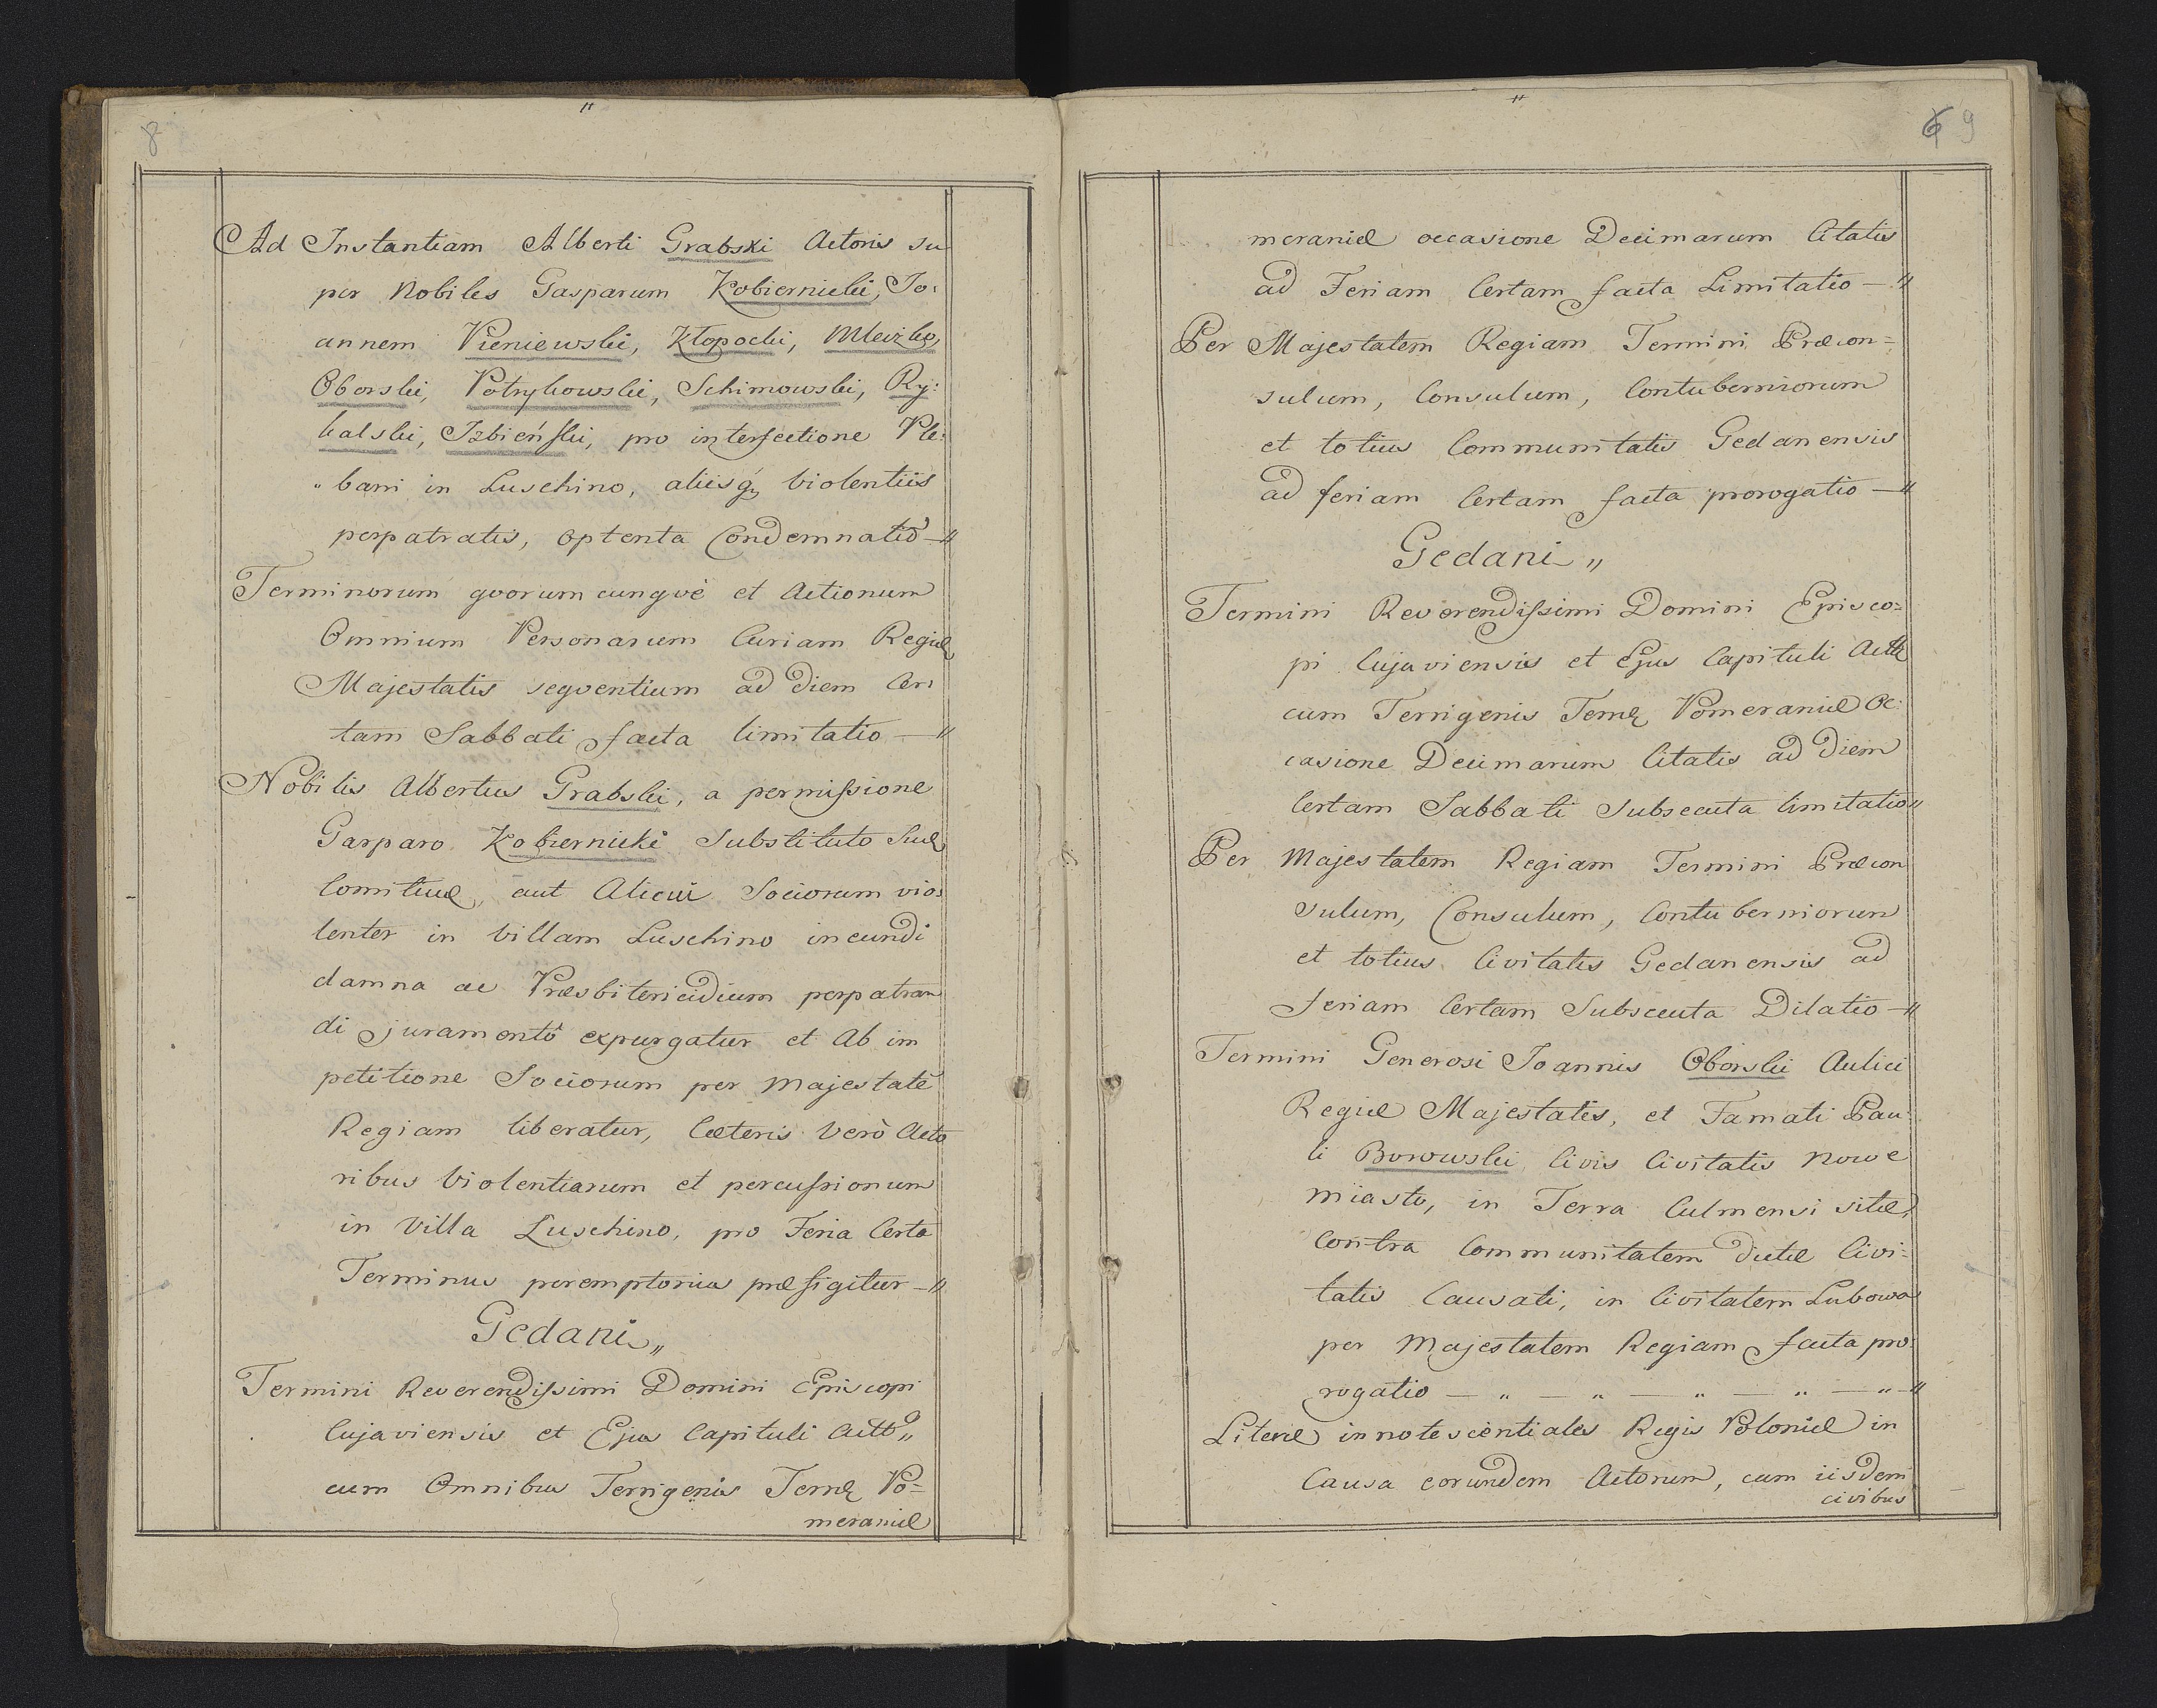 8
Ad Instantiam Alberti Grabski Actoris su
per Nobiles Gasparum Kobiernicki, Jo:
annem Pieniewski, Kłopocki,
Oborski, Potrykowski, Schimowski, Ry:
balski, Izbieński, pro interfectione Ple:
"bani in Luschino, aliisq3 violentiis
perpatratis, optenta Condemnatio —"
Terminorum qvorumcunqve et Actionum
Omnium Personarum Curiam Regiæ
Majestatis seqventium ad diem Cer:
tam Sabbati facta limitatio —"
Nobilis Albertus Grabski, a permissione
Gasparo Kobiernicki Substituto Suæ
Comitivæ, aut Alicui Sociorum vio:
lenter in Villam Luschino ineundi
damna ac Præsbitericidium perpatran
di juramentô expurgatur et Ab im
petitione Sociorum per Majestatē
Regiam liberatur, Cæteris verò Acto
ribus violentiarum et percussionum
in Villa Luschino, pro Feria Certa
Terminus peremptorius præfigitur —"
Gedani "
Termini Reverendissimi Domini Episcopi
Cujaviensis et Ejus Capituli
cum Omnibus Terrigenis Terræ Po=
meraniæ
6 9
meraniæ occasione Decimarum Citatis
ad Feriam Certam facta Limitatio —"
Per Majestatem Regiam Termini Præcon=
sulum, Consulum, Contuberniorum
et totius Communitatis Gedanensis
ad feriam Certam facta prorogatio —"
Gedani "
Termini Reverendissimi Domini Episco=
pi Cujaviensis et Ejus Capituli
cum Terrigenis Terræ Pomeraniæ Oc:
casione Decimarum Citatis ad diem
Certam Sabbati Subsecuta limitatio "
Per Majestatem Regiam Termini Præcon
sulum, Consulum, Contuberniorum
et totius Civitatis Gedanensis ad
Feriam Certam Subsecuta Dilatio —"
Termini Generosi Joannis Oborski Aulici
Regiæ Majestatis, et Famati Pau:
li Borowski civis Civitatis Nowe
miasto, in Terra Culmensi sitæ,
Contra Communitatem dictæ Civi=
tatis Causati, in Civitatem Lubowa
per Majestatem Regiam facta pro:
rogatio — " — " — " — " — " —"
Literæ innotescentiales Regis Poloniæ in
Causa eorundem Actorum, cum iisdem
civibus